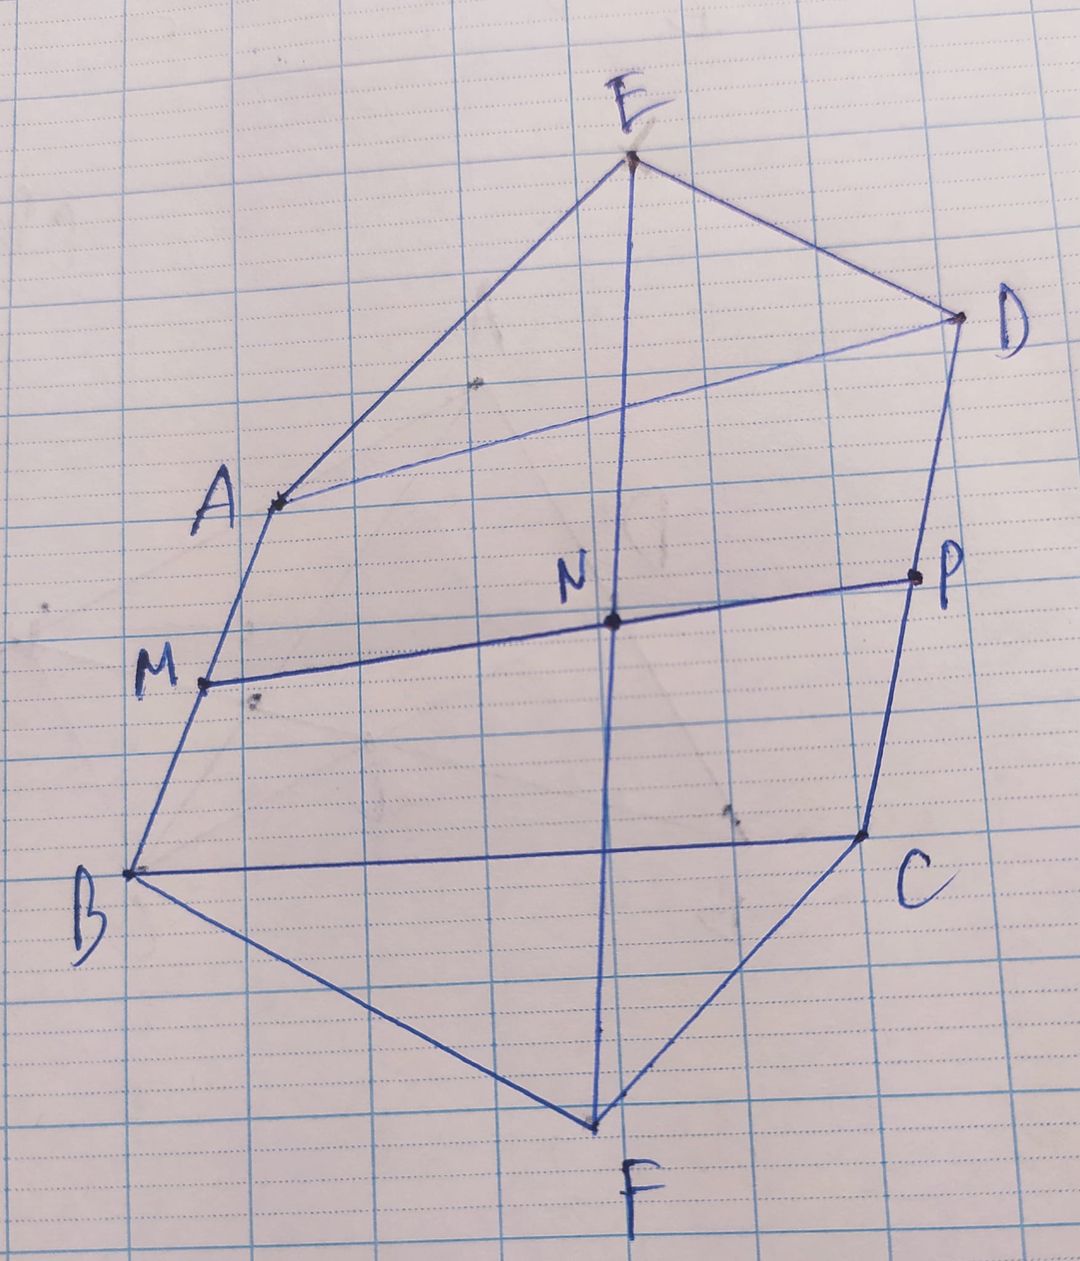 E
D
A
N
P
M
B
C
F